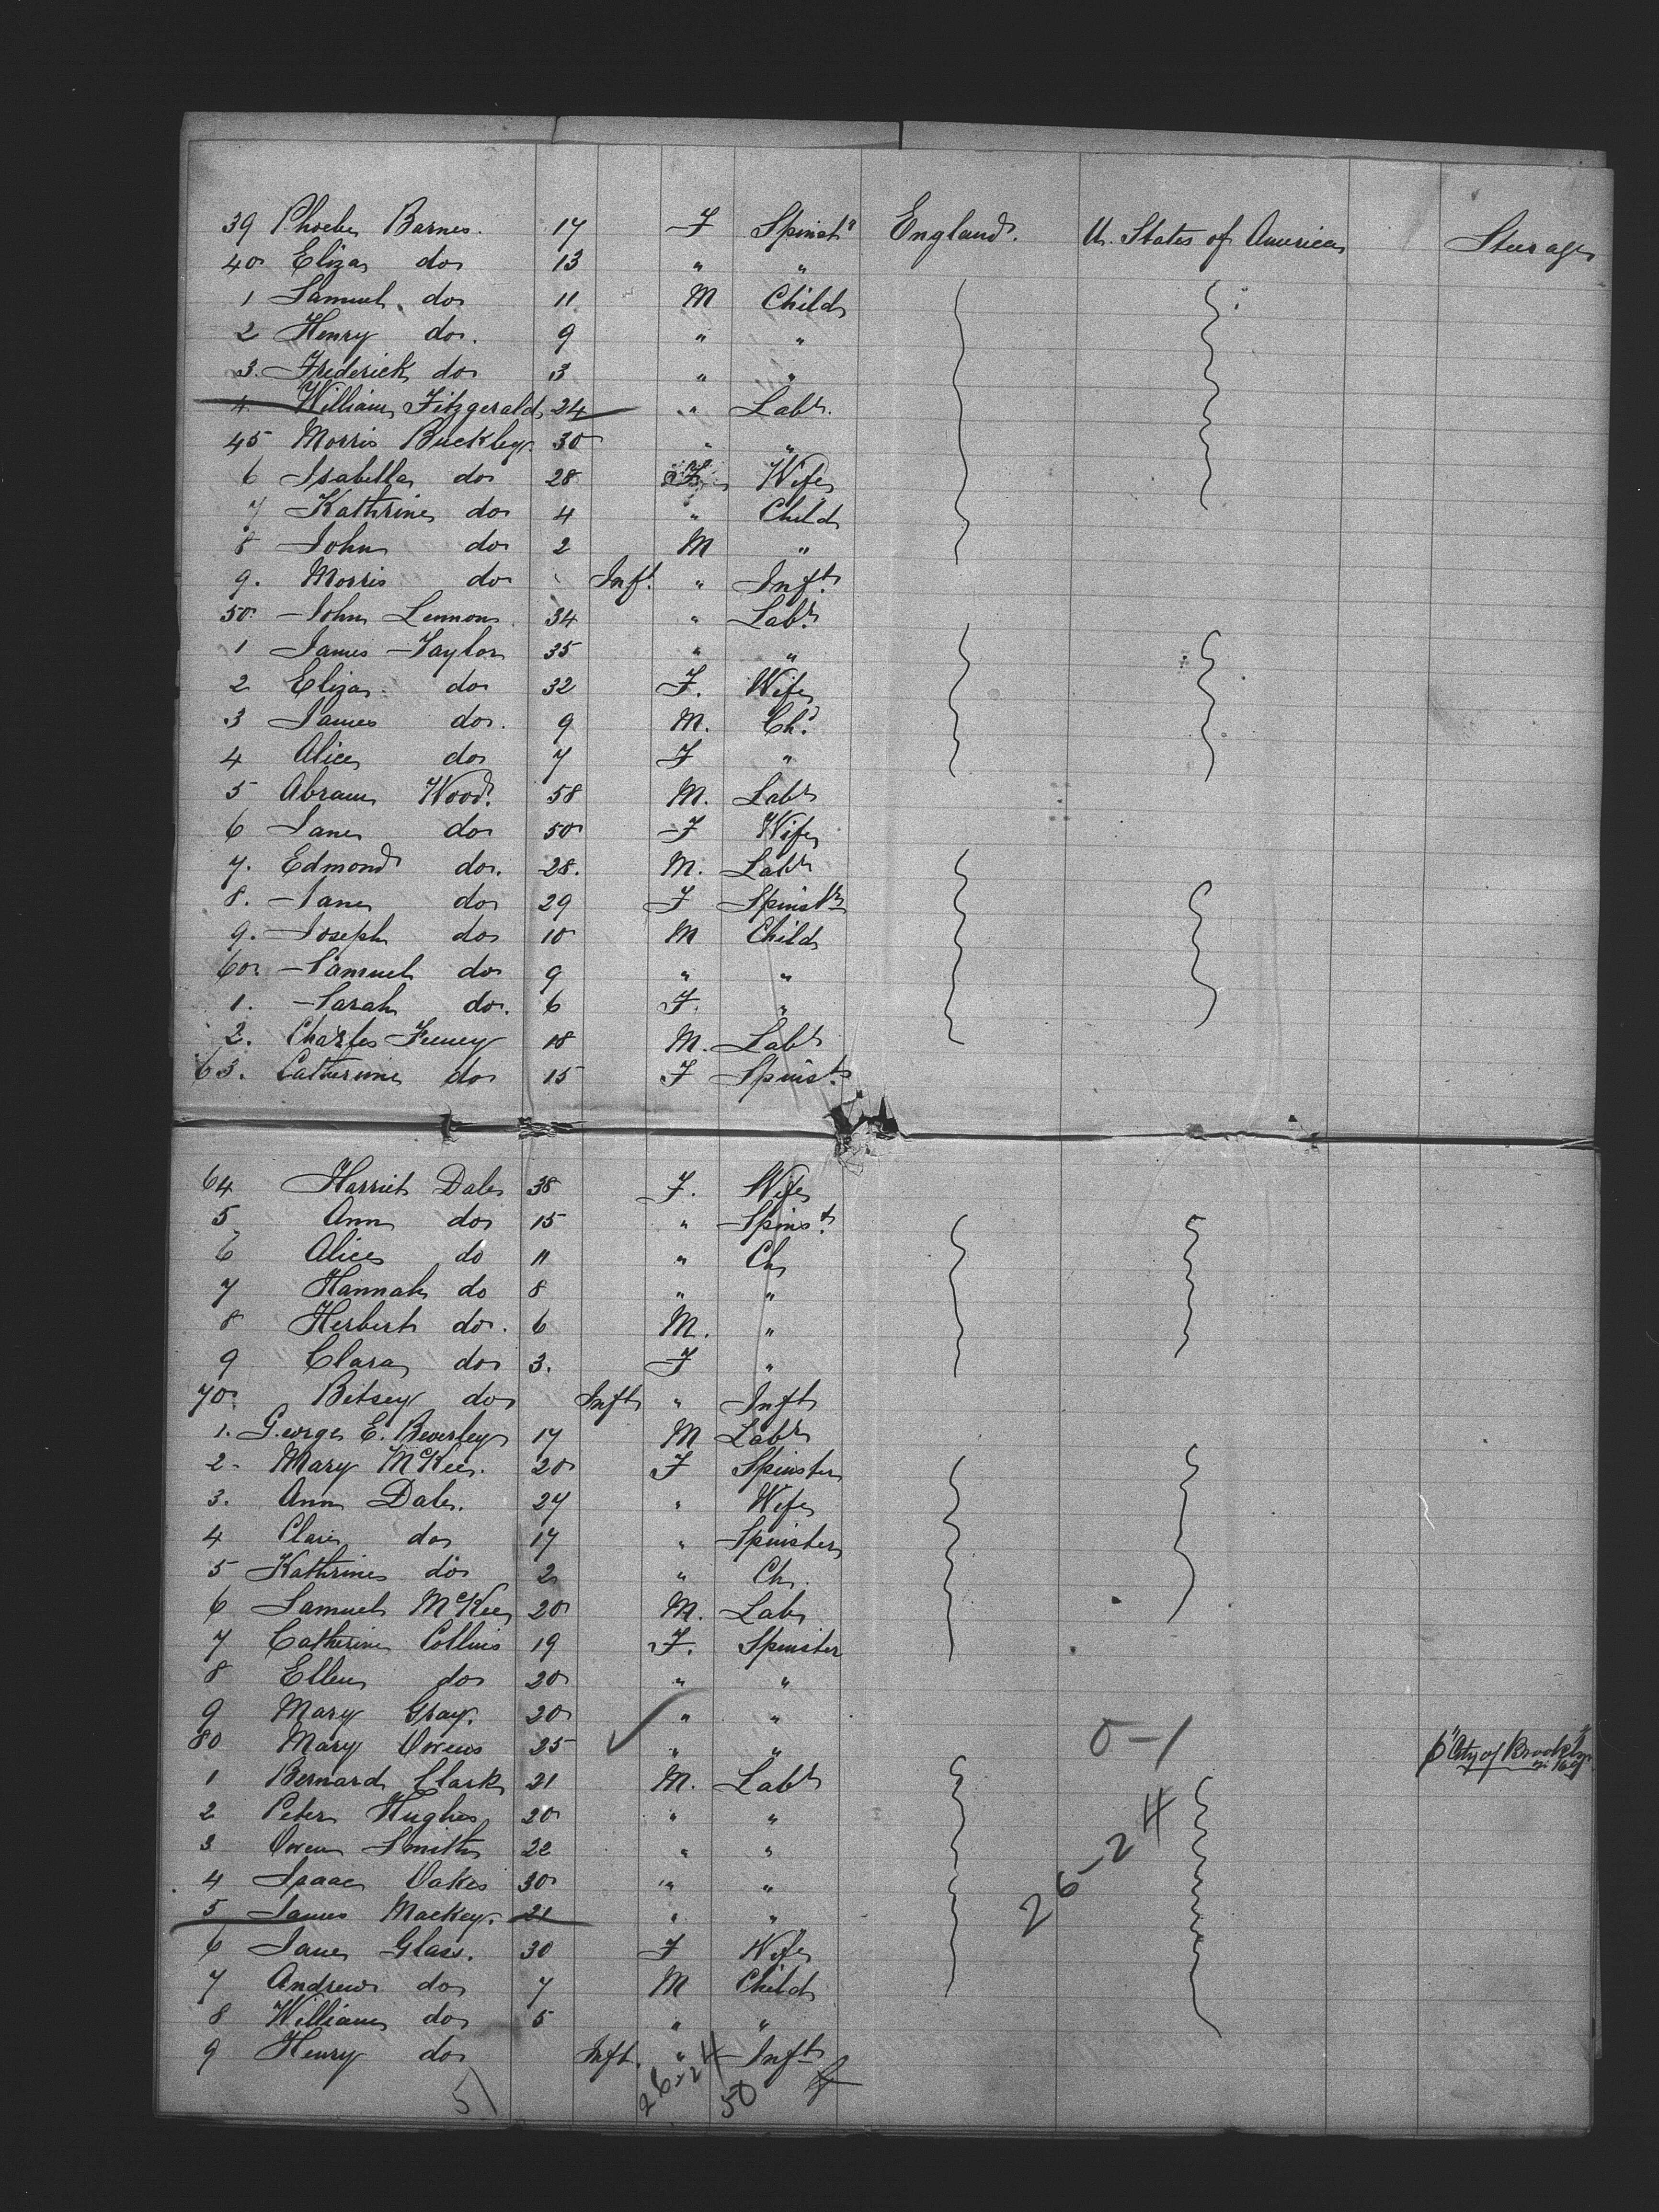 39 Phoebe Barnes. 17 F Spinstr England. U. States of America Steerage
40 Eliza do 13 " "
1 Samuel do 11 M Child
2 Henry do. 9 " "
3. Frederick do 3 " "
4 William Fitzgerald 24 " Labr.
45 Morris Buckley 30 " "
6 Isabella do 28 F Wife
7 Kathrine do 4 " Child
8 John do 2 M "
9. Morris do Inft. " Inft.
50 John Lennon 34 " Labr.
1 James Taylor 35 " "
2 Eliza do 32 F. Wife
3 James do. 9 M. Chd.
4 Alice do 7 F "
5 Abram Wood. 58 M. Labr
6 Jane do 50 F Wife
7. Edmond do. 28. M. Labr
8. Jane do 29 F Spinstr
9. Joseph do 10 M Child
60 Samuel do 9 " "
1. Sarah do. 6 F. "
2. Charles Feeney 18 M. Labr
63. Catherine do 15 F Spinst.
64 Harriet Dale 38 F. Wife
5 Ann do 15 " Spinst.
6 Alice do 11 " Ch
7 Hannah do 8 " "
8 Herbert do. 6 M. "
9 Clara do 3. F "
70 Betsey do Inft " Inft
1. George E. Beverley 17 M Labr
2 Mary McKee. 20 F Spinster
3. Ann Dale. 27 " Wife
4 Clare do 17 " Spinster
5 Kathrine do 2 " Ch.
6 Samuel McKee 20 M. Lab
7 Catherine Collins 19 F. Spinster
8 Ellen do 20 " "
9 Mary Gray. 20 " "
80 Mary Owens 25 " " 0-1 p "City of Brooklyn"
1 Bernard Clark 21 M. Labr
2 Peter Hughes 20 " "
3 Owen Smith 22 " "
4 Isaac Oakes 30 " " 26-24
5 James Mackey. 21 " "
6 Jane Glass. 30 F Wife
7 Andrew do 7 M Child
8 William do 5 " "
9 Henry do Inft. " Inft
51 26-24 50